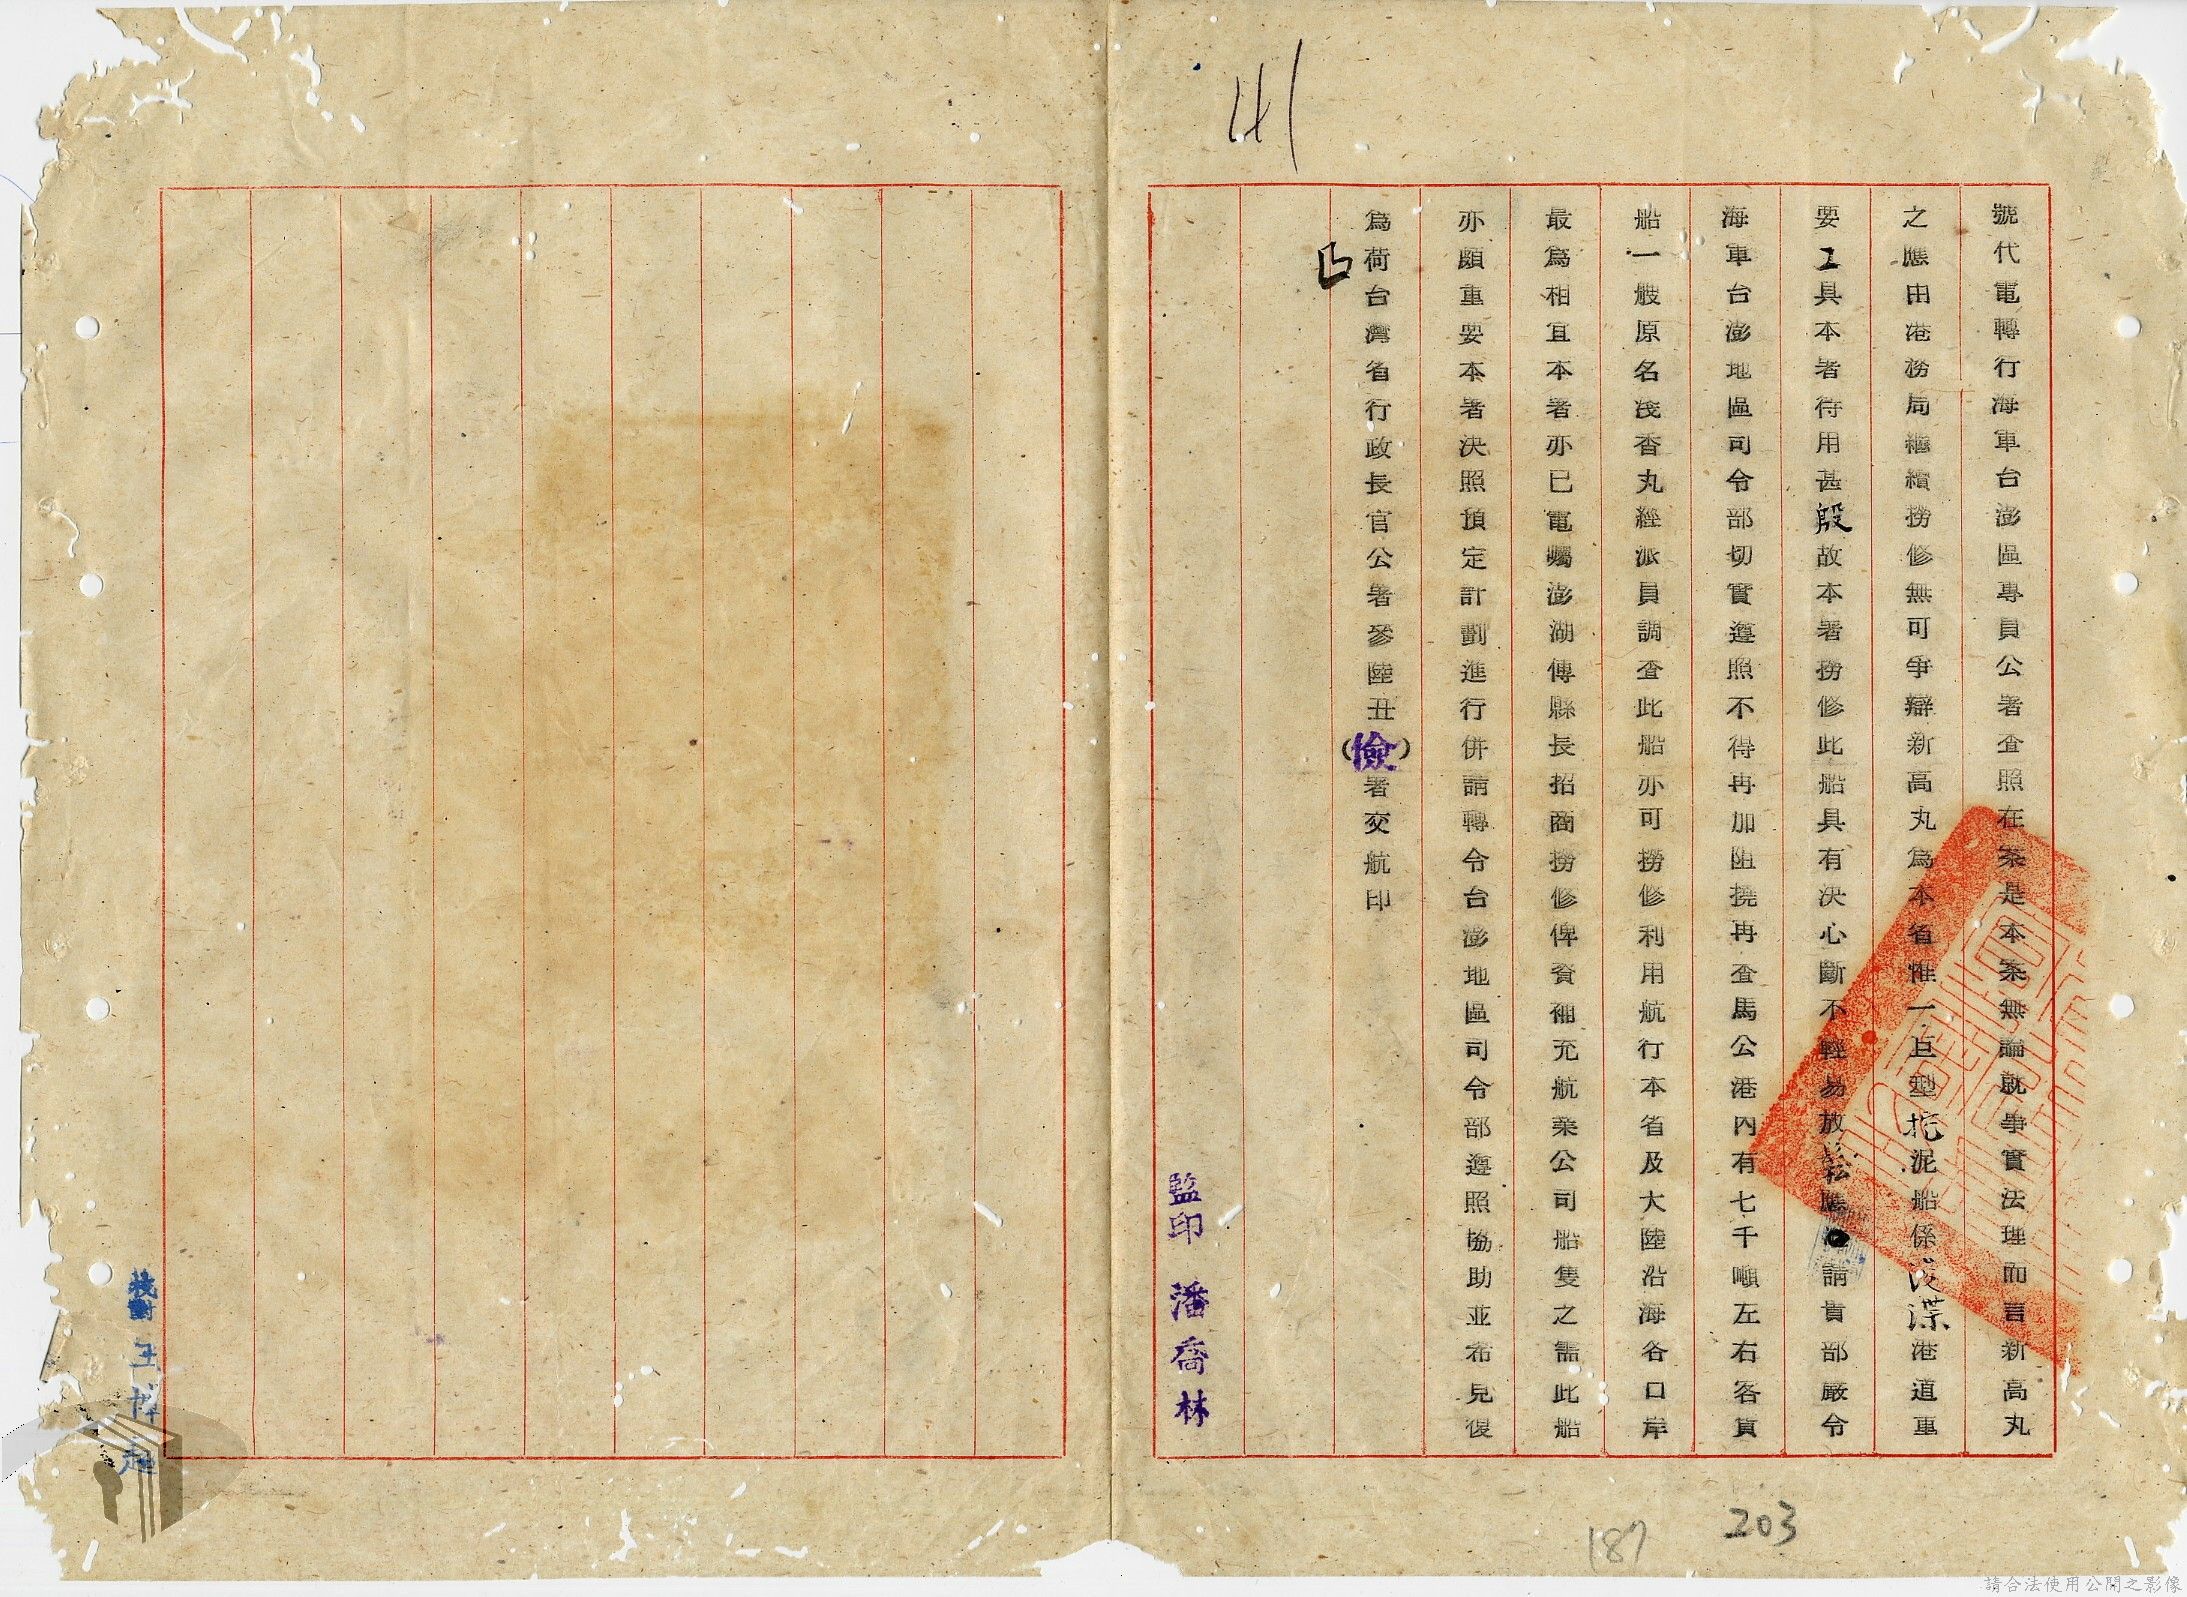 號代電轉行海軍台澎區專員公署查照在案是本案無論就事實法理而言新高丸
之應由港務局繼續撈修無可爭辯新高丸為本省惟一巨型挖泥船係浚渫港道重
要工具本署待用甚殷故本署撈修此船具有決心斷不輕易放鬆應請貴部嚴令
海軍台澎地區司令部切實遵照不得再加阻撓再查馬公港內有七千噸左右客貨
船一艘原名浅香丸經派員調查此船亦可撈修利用航行本省及大陸沿海各口岸
最為相宜本署亦已電囑澎湖傅縣長招商撈修俾資補充航業公司船隻之需此船
亦頗重要本署決照預定計劃進行併請轉令台澎地區司令部遵照協助並希見復
為荷台灣省行政長官公署參陸丑(儉)署交航印
監印 潘喬林
校對 王
141
187
203
請合法使用公開之影像